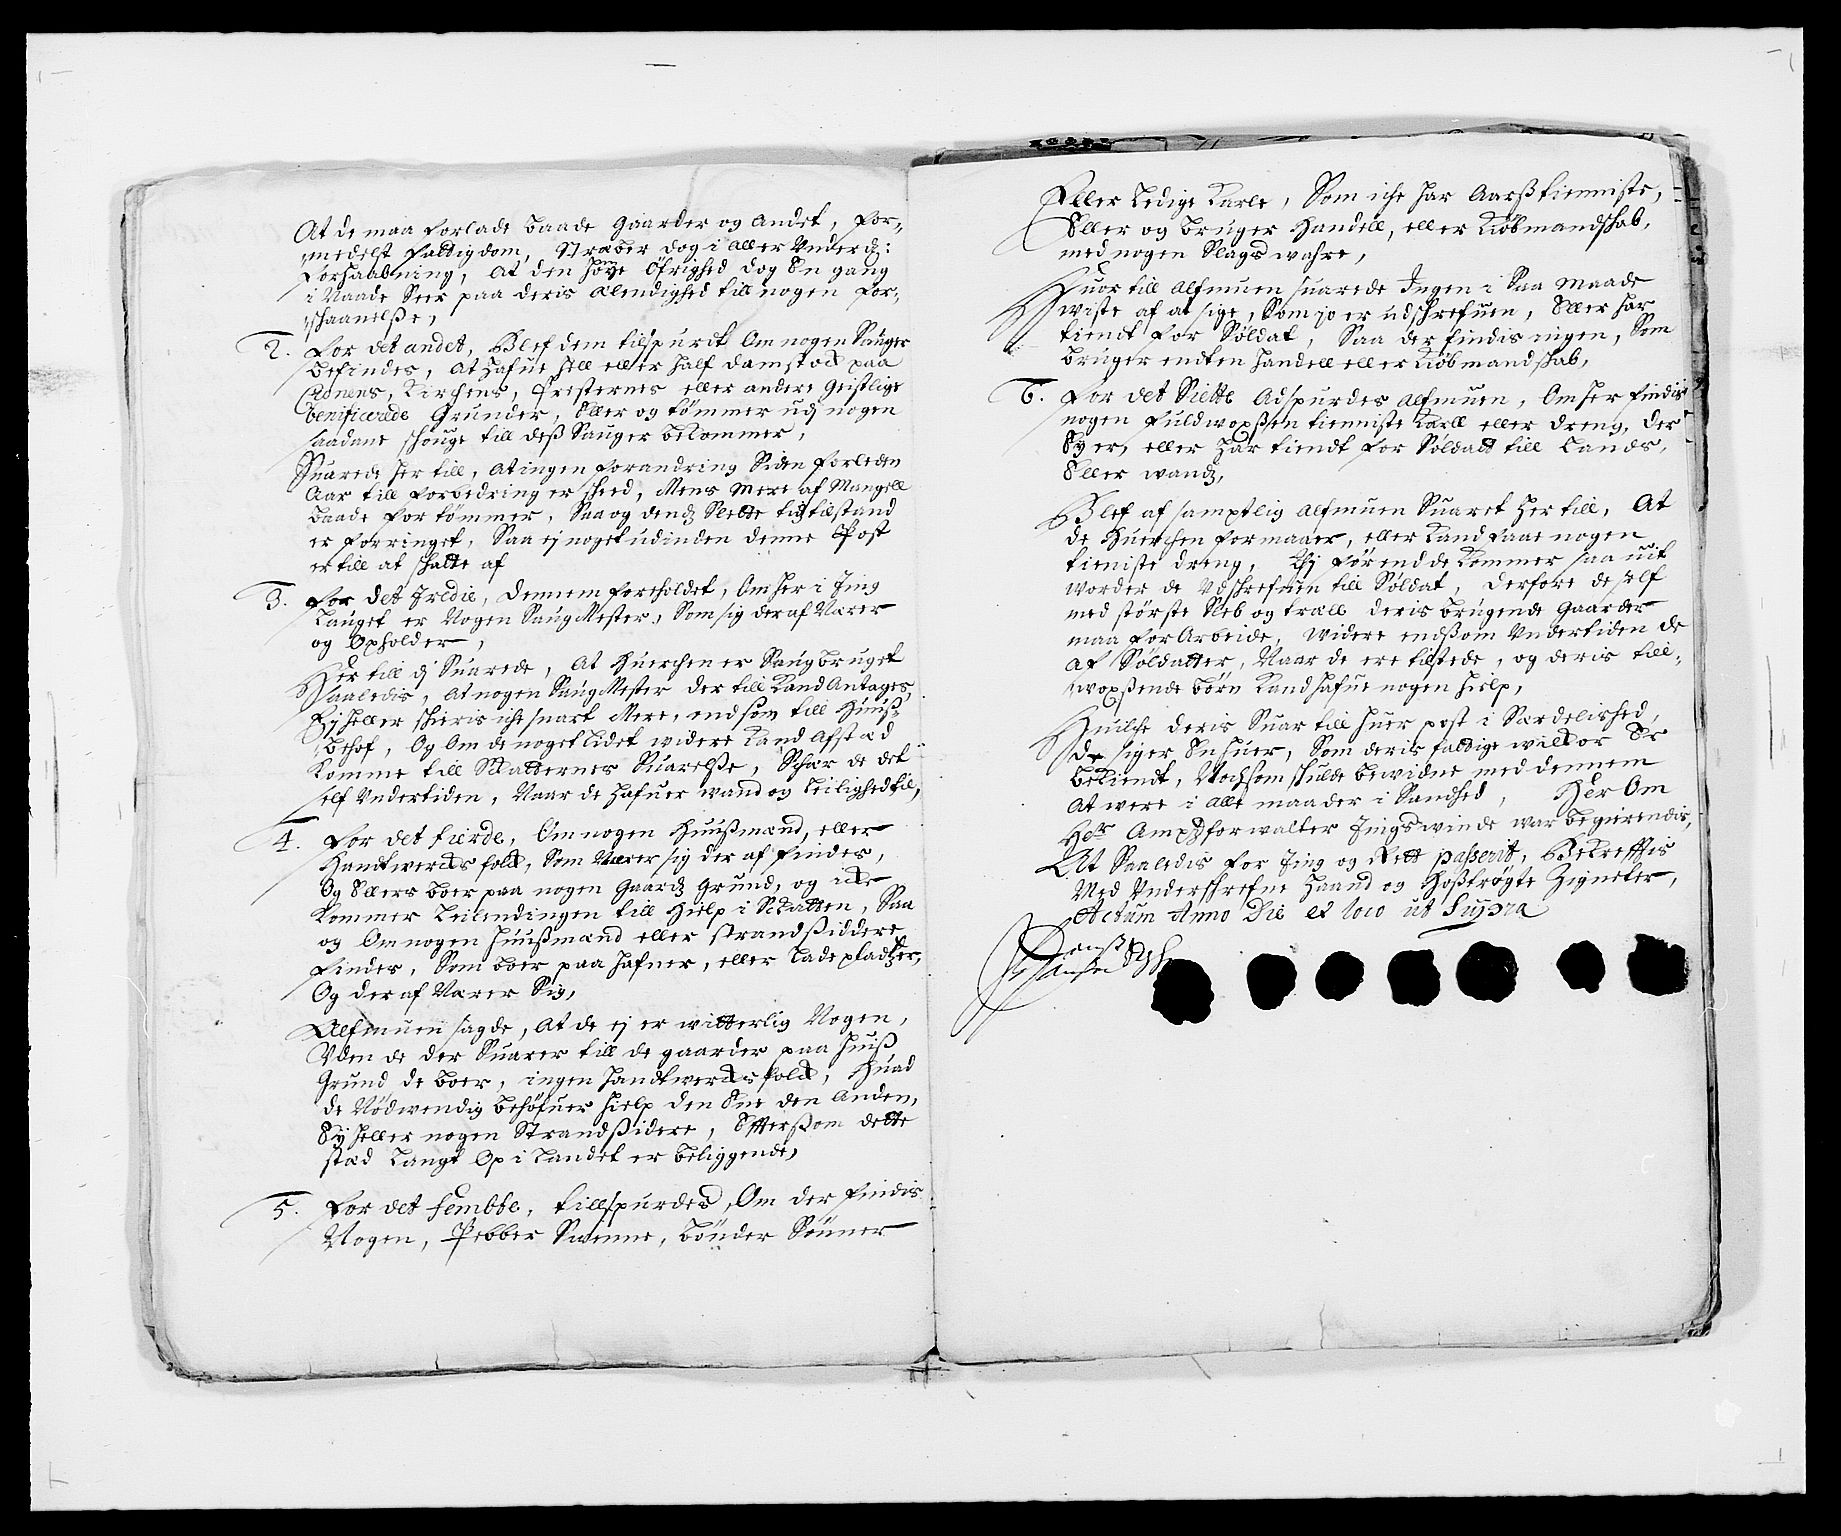 At de maa forlade baade gaarder og andet, for,,
medelst fattigdom, stræber dog i aller underd:
forhaabning, at den høye Öfrighed dog En gang
i Naade Seer paa deris Elendighed till nogen for,,
schaanelße,
2. For det andet, Blef dem tilspurdt Om nogen Sauger
befindes, at hafue hell eller half damstock paa
Cronens, Kirchens, Presternes eller andre Geistlige
benificerede Grunder, Eller og tømmer udj nogen
saadane schouge till deß Sauger bekommer,
Suarede her till, at ingen forandring Siden forleden
Aar till forbedring er scheed, Mens Mere af Mangell
baade for tømmer, Saa og dend Slette tids tilstand
er forringet, Saa ej noget udinden denne Post
er till at schatte af
3. For det Tredie, dennem foreholdet, Om her i Ting
Lauget er Nogen Saug Mester, Som sig der af Nærer
og Opholder,
Her till dj Suarede, at huerchen er Saugbruget
saaledis, at nogen Saug Mester der till kand Antages,
Ey heller schieris iche snart Mere, end som till Huuß,,
behof, Og Om de noget lidet widere kand afstæd
komme till Skatternes Suarelße, Schær de det
self Undertiden, Naar de hafuer wand og Leilighed til,
4. For det fierde, Om nogen Huußmænd, eller
Handtwercksfolck, Som Nærer sig der af findes,
Og Ellers boer paa nogen Gaards Grund, og icke
kommer Leilendingen till hielp i Skatten, Saa
og Om nogen huußmænd eller strandsiddere
findes, Som boer paa hafner, eller ladepladtzer,
Og der af Nærer Sig,
Allmuen sagde, at de ej er witterlig Nogen,
Uden de der Suarer till de gaarder paa huiß
Grund de boer, ingen handtwercksfolck, Huad
de Nødwendig behøfuer hielp den Ene den Anden,
Ey heller nogen Strandßidere, Efterßom dette
stæd Langt Op i Landet er beliggende,
5. For det fembte, tillspurdes, Om der findis
Nogen, Pebber Swenne, bönder Sönner
Eller Ledige Karle, Som iche har Aarßtienniste,
Eller og bruger Handell, eller Kiöbmandschab,
med nogen Slags wahre,
Huor till Allmuen suarede Ingen i Saa maade
wiste af at sige, Som jo er udschrefuen, Eller har
tiendt for Soldat, Saa der findis ingen, Som
bruger endten handell eller Kiöbmandschab,
6. For det Siette Adspurdes Allmuen, Om her findis
nogen fuldwoxßen tienniste Karll eller dreng, der
Ey er, eller har tiendt for Soldatt till Lands,
Eller wands,
Blef af samptlig Allmuen Suaret her till, At
de huerchen formaaer, eller kand faae nogen
tieniste dreng, thj förend de kommer saa uit
worder de Udschrefuen till Soldat, derfore de self
med største Sleb og træll deris brugende Gaarder
maa for Arbeide, widere end som Undertiden de
af Soldatter, Naar de ere tilstede, og deris till,,
woxßende börn kand hafue nogen hielp,
Huilche deris Suar till huer post i Særdelished,
de siger En huer, Som deris fattige wilckor Er
bekiendt, Noch som schulde bewidne med dennem
At were i alle maader i Sandhed, Her Om
Hr Ampdforwalter Tingswinde war begierendis,
At Saaledis for Ting og Rett passerit, Bekrefftis
Med Underschrefne Haand og Hoßtrögte Zigneter,
Actum Anno Die et loco ut Supra